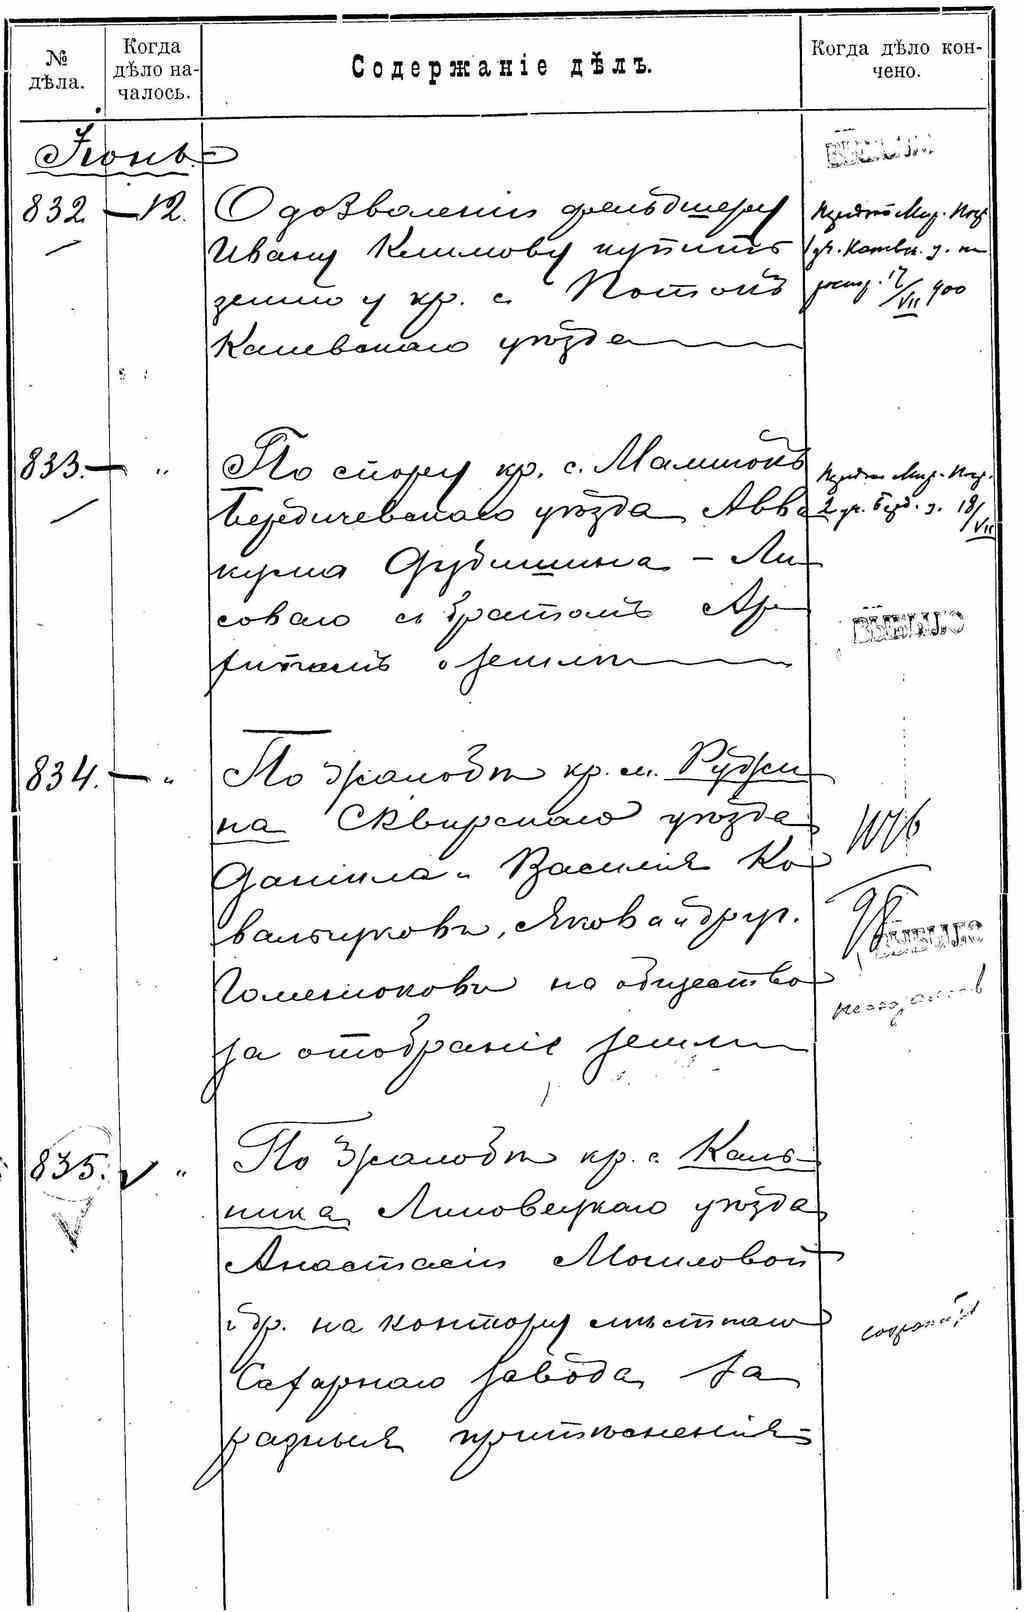 № дѣла.
Когда дѣло началось.
Содержаніе дѣлъ.
Когда дѣло кончено.
Іюнь
832 — 12.
О дозволеніи фельдшеру
Ивану Климову купить
землю у кр. с. Потокъ
Каневскаго уѣзда
Мир. Пос.
1 уч. Каневск. у. на
распор. 17/VII 900
833. — "
По спору кр. с.
Бердичевскаго уѣзда Авва
кума
соваго съ братомъ
о землѣ
Мир. Пос.
2 уч. Берд. у. 18/VII
ВЫБЫЛО
834. — "
По жалобѣ кр. м. Ружи
на Сквирскаго уѣзда
Даніила и Василія Ко
вальчуковъ, Якова и друг.
на общество
за отобраніе земли
ВЫБЫЛО
835. "
По жалобѣ кр. с. Каль
ника Липовецкаго уѣзда
Анастасіи Могиловой
и др. на контору мѣстнаго
Сахарнаго завода за
разныя притѣсненія